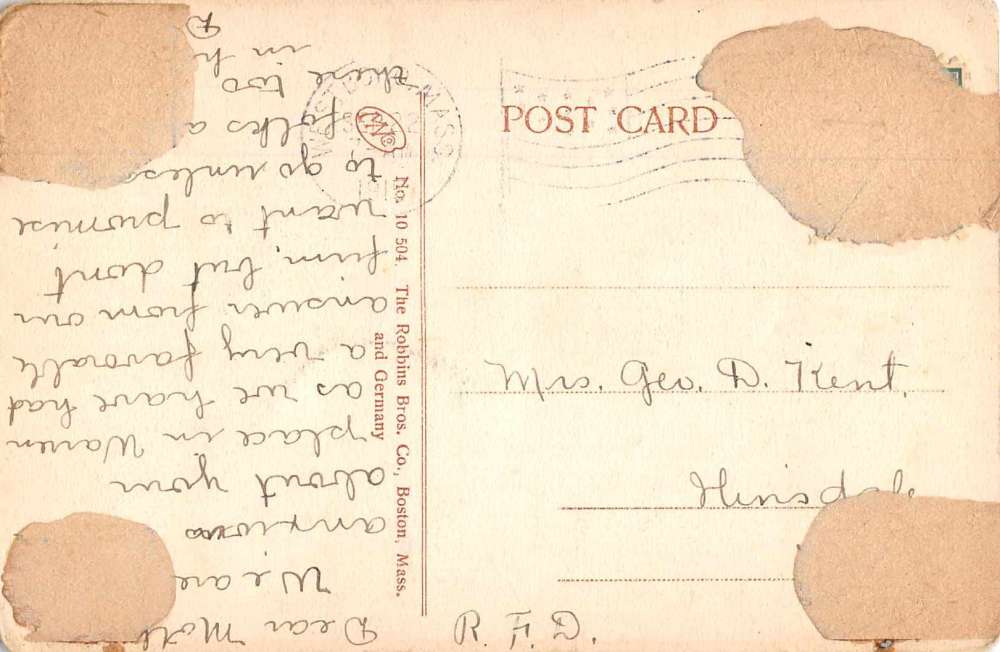 POST CARD
Mrs. Geo. D. Kent.
Hinsdale
R. F. D.
No. 10 504. The Robbins Bros. Co., Boston, Mass.
and Germany
MASS
Dear
We are
anxious
about your
place in Warren
as we have had
a very favorable
answer from our
firm, but don't
want to promise
to go unless
folks a
there too
in